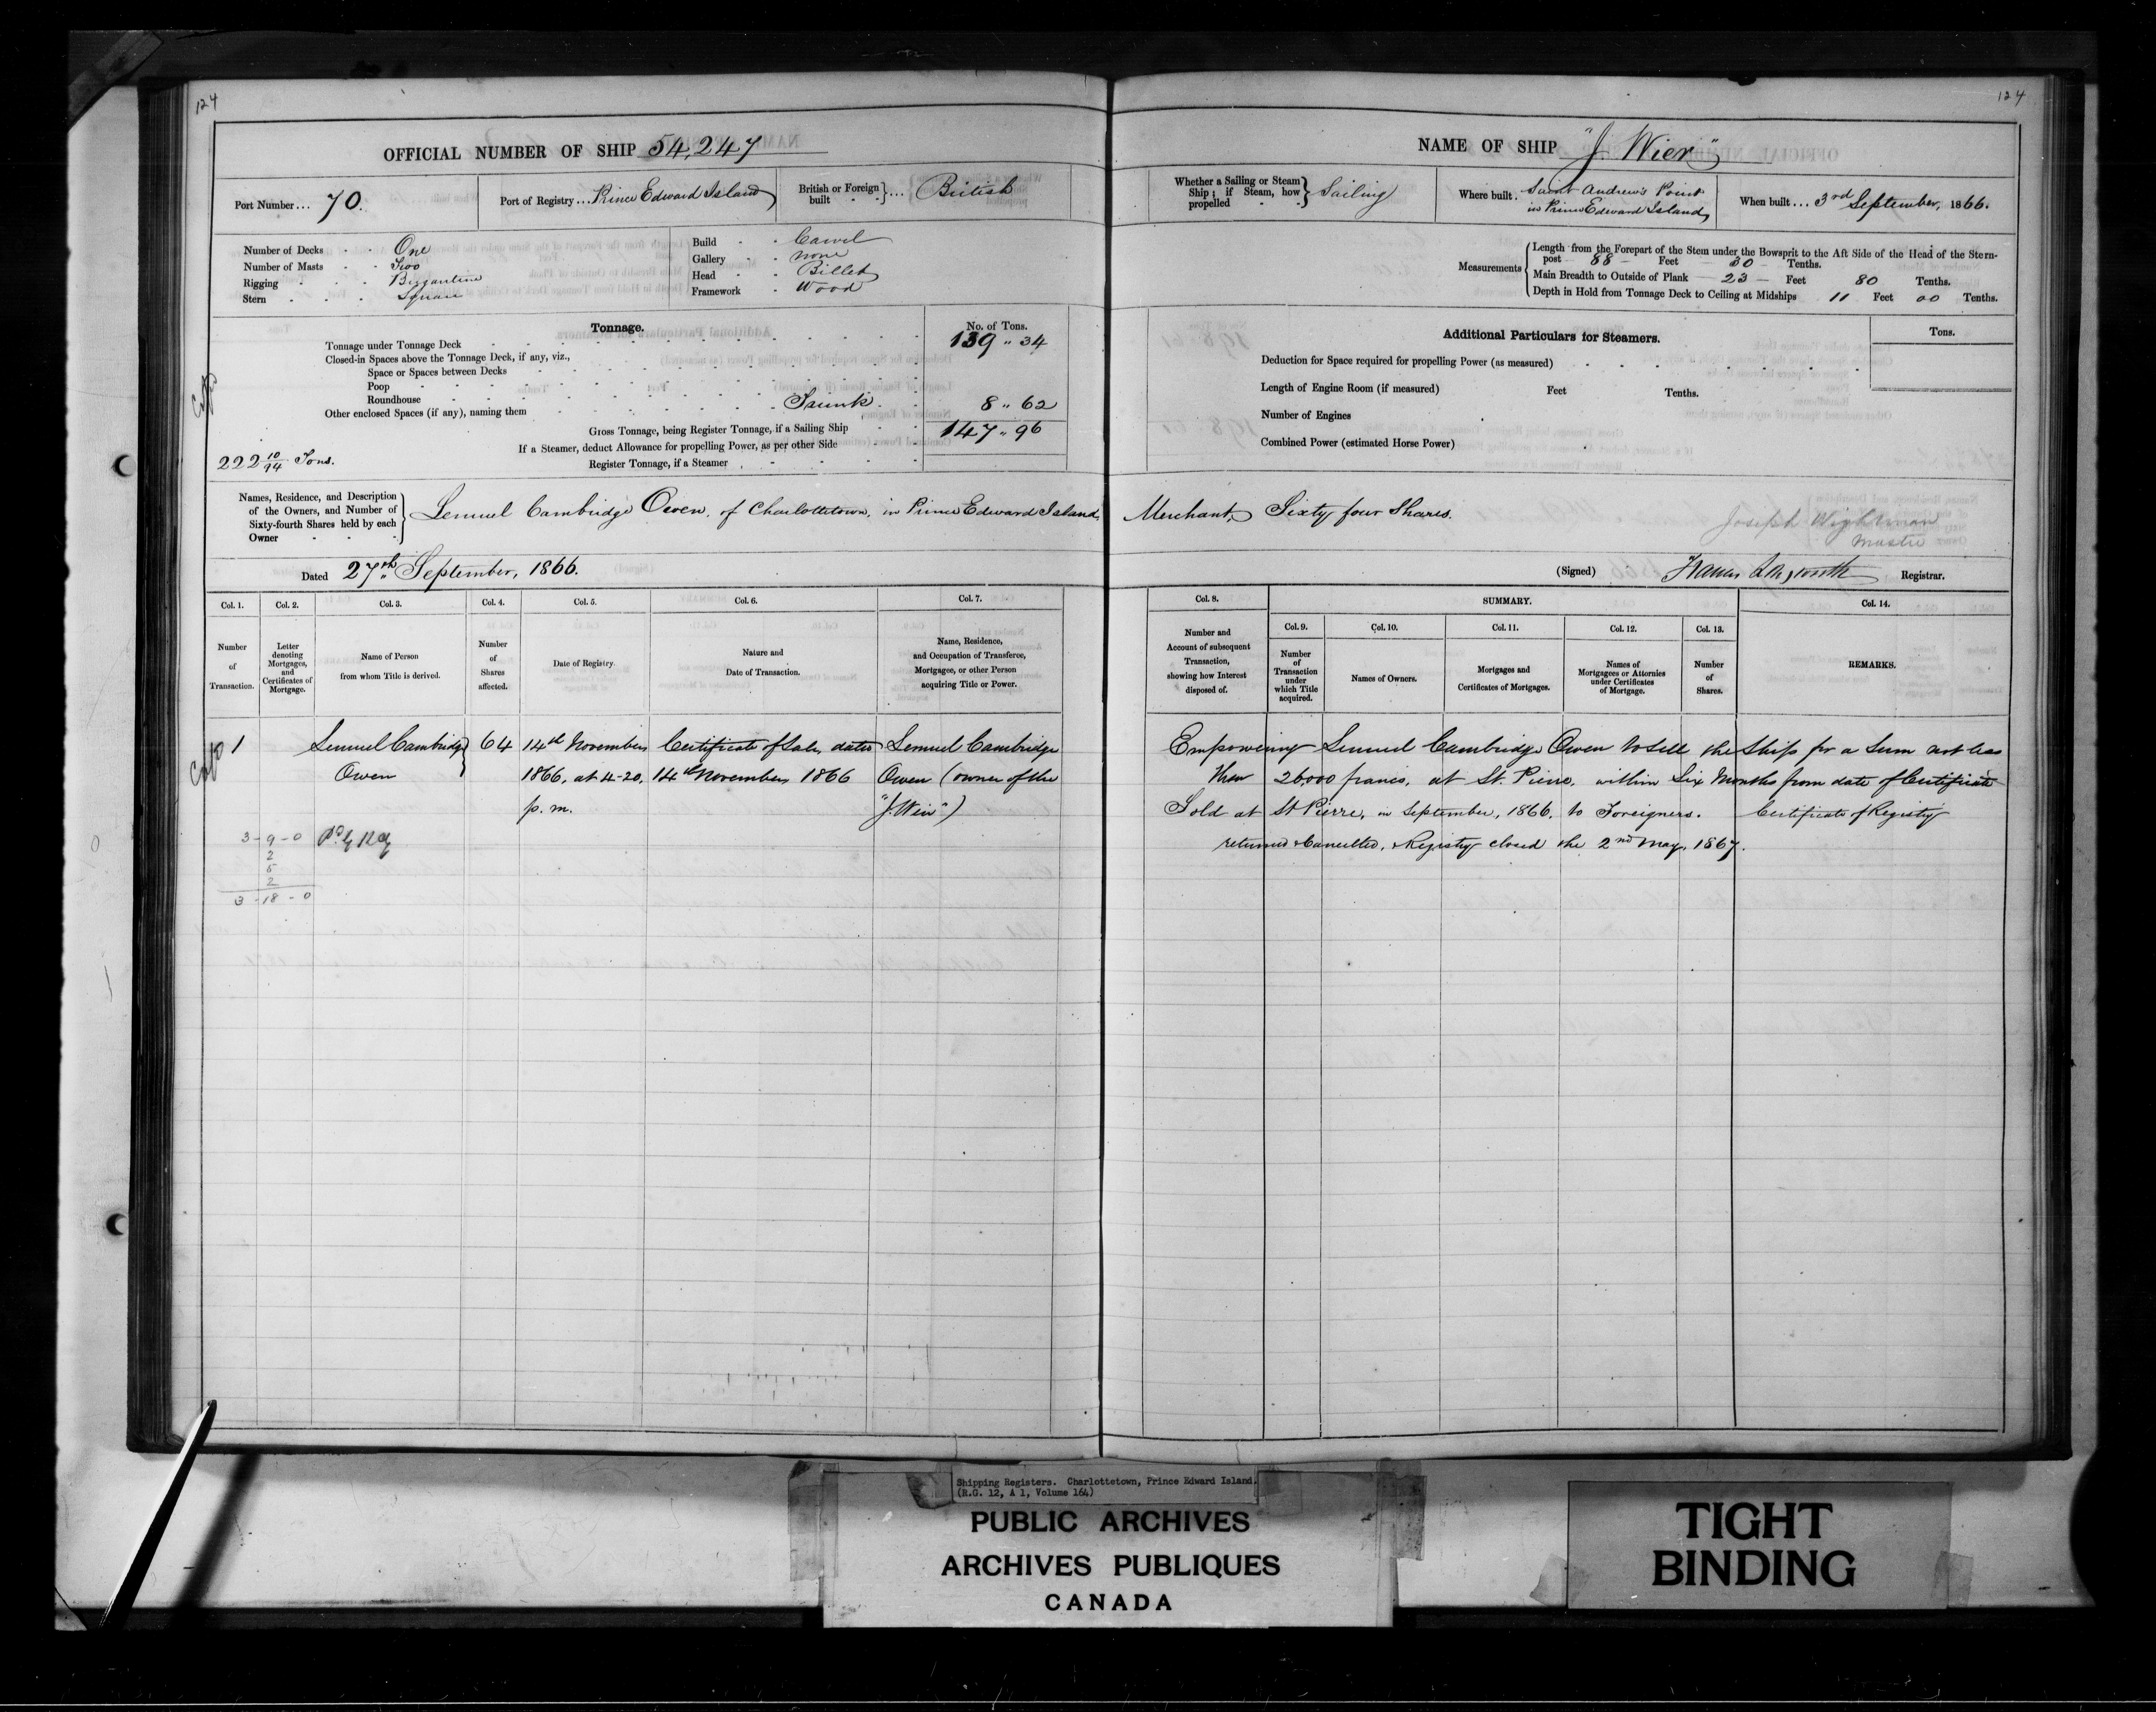 124
OFFICIAL NUMBER OF SHIP 54,247
Port Number... 70.
Port of Registry... Prince Edward Island
British or Foreign built } ... British
Number of Decks - - One
Number of Masts - - Two
Rigging - - - Brigantine
Stern - - - Square
Build - - Carvel
Gallery - - none
Head - - Billet
Framework - Wood
Tonnage.
No. of Tons.
Tonnage under Tonnage Deck 139 " 34
Closed-in Spaces above the Tonnage Deck, if any, viz.,
Space or Spaces between Decks
Poop
Roundhouse
Other enclosed Spaces (if any), naming them Trunk 8 " 62
Gross Tonnage, being Register Tonnage, if a Sailing Ship 147 " 96
If a Steamer, deduct Allowance for propelling Power, as per other Side
Register Tonnage, if a Steamer
222 10/94 Tons.
Names, Residence, and Description of the Owners, and Number of Sixty-fourth Shares held by each Owner } Lemuel Cambridge Owen, of Charlottetown, in Prince Edward Island,
Dated 27th September, 1866.
Col. 1. Col. 2. Col. 3. Col. 4. Col. 5. Col. 6. Col. 7.
Number of Transaction.
Letter denoting Mortgages, and Certificates of Mortgage.
Name of Person from whom Title is derived.
Number of Shares affected.
Date of Registry.
Nature and Date of Transaction.
Name, Residence, and Occupation of Transferee, Mortgagee, or other Person acquiring Title or Power.
1 Lemuel Cambridge } 64 14th November Certificate of Sale, dated Lemuel Cambridge
Owen 1866, at 4-20, 14th November 1866 Owen (owner of the
p. m. "J. Wier")
3-9-0
2
5
2
3-18-0
124
NAME OF SHIP "J. Wier"
Whether a Sailing or Steam Ship; if Steam, how propelled } Sailing
Where built. Saint Andrew's Point in Prince Edward Island,
When built... 3rd September, 1866.
Measurements { Length from the Forepart of the Stem under the Bowsprit to the Aft Side of the Head of the Stern-
post - 88 - Feet 30 - Tenths.
Main Breadth to Outside of Plank - 23 - Feet 80 Tenths.
Depth in Hold from Tonnage Deck to Ceiling at Midships 11 Feet 00 Tenths.
Additional Particulars for Steamers.
Tons.
Deduction for Space required for propelling Power (as measured)
Length of Engine Room (if measured) Feet Tenths.
Number of Engines
Combined Power (estimated Horse Power)
Merchant, Sixty four Shares.
Joseph Wightman
Master
(Signed) Francis Longworth Registrar.
Col. 8. SUMMARY. Col. 14.
Col. 9. Col. 10. Col. 11. Col. 12. Col. 13.
Number and Account of subsequent Transaction, showing how Interest disposed of.
Number of Transaction under which Title acquired.
Names of Owners.
Mortgages and Certificates of Mortgages.
Names of Mortgagees or Attornies under Certificates of Mortgage.
Number of Shares.
REMARKS.
Empowering Lemuel Cambridge Owen to sell the Ship for a Sum not less
than 26000 francs, at St. Pierre, within Six Months from date of Certificate
Sold at St Pierre, in September, 1866, to Foreigners. Certificate of Registry
returned & Cancelled, Registry closed the 2nd May, 1867.
Shipping Registers. Charlottetown, Prince Edward Island.
(R.G. 12, A 1, Volume 164)
PUBLIC ARCHIVES
ARCHIVES PUBLIQUES
CANADA
TIGHT
BINDING